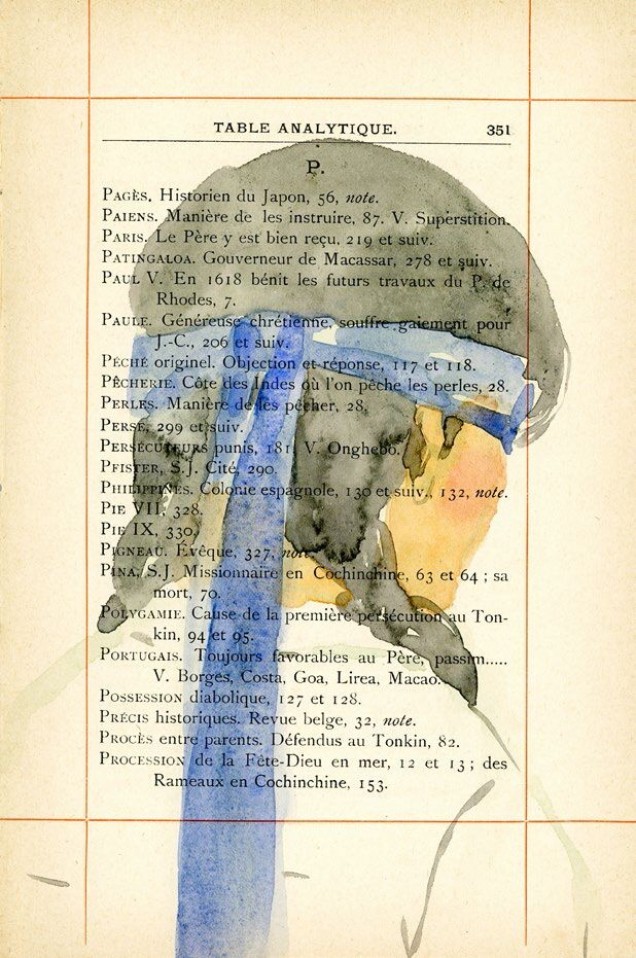 TABLE ANALYTIQUE. 351
P.
PAGÈS. Historien du Japon, 56, note.
PAIENS. Manière de les instruire, 87. V. Superstition.
PARIS. Le Père y est bien reçu, 219 et suiv.
PATINGALOA. Gouverneur de Macassar, 278 et suiv.
PAUL V. En 1618 bénit les futurs travaux du P. de
Rhodes, 7.
PAULE. Généreuse chrétienne, souffre gaiement pour
J.-C., 206 et suiv.
PÉCHÉ originel. Objection et réponse, 117 et 118.
PÊCHERIE. Côte des Indes où l'on pêche les perles, 28.
PERLES. Manière de les pêcher, 28.
PERSE, 299 et suiv.
PERSÉCUTEURS punis, 181. V. Onghebo.
PFISTER, S.J. Cité, 290.
PHILIPPINES. Colonie espagnole, 130 et suiv., 132, note.
PIE VII, 328.
PIE IX, 330.
PIGNEAU. Évêque, 327, note.
PINA, S.J. Missionnaire en Cochinchine, 63 et 64 ; sa
mort, 70.
POLYGAMIE. Cause de la première persécution au Ton-
kin, 94 et 95.
PORTUGAIS. Toujours favorables au Père, passim.....
V. Borgès, Costa, Goa, Lirea, Macao.
POSSESSION diabolique, 127 et 128.
PRÉCIS historiques. Revue belge, 32, note.
PROCÈS entre parents. Défendus au Tonkin, 82.
PROCESSION de la Fête-Dieu en mer, 12 et 13 ; des
Rameaux en Cochinchine, 153.